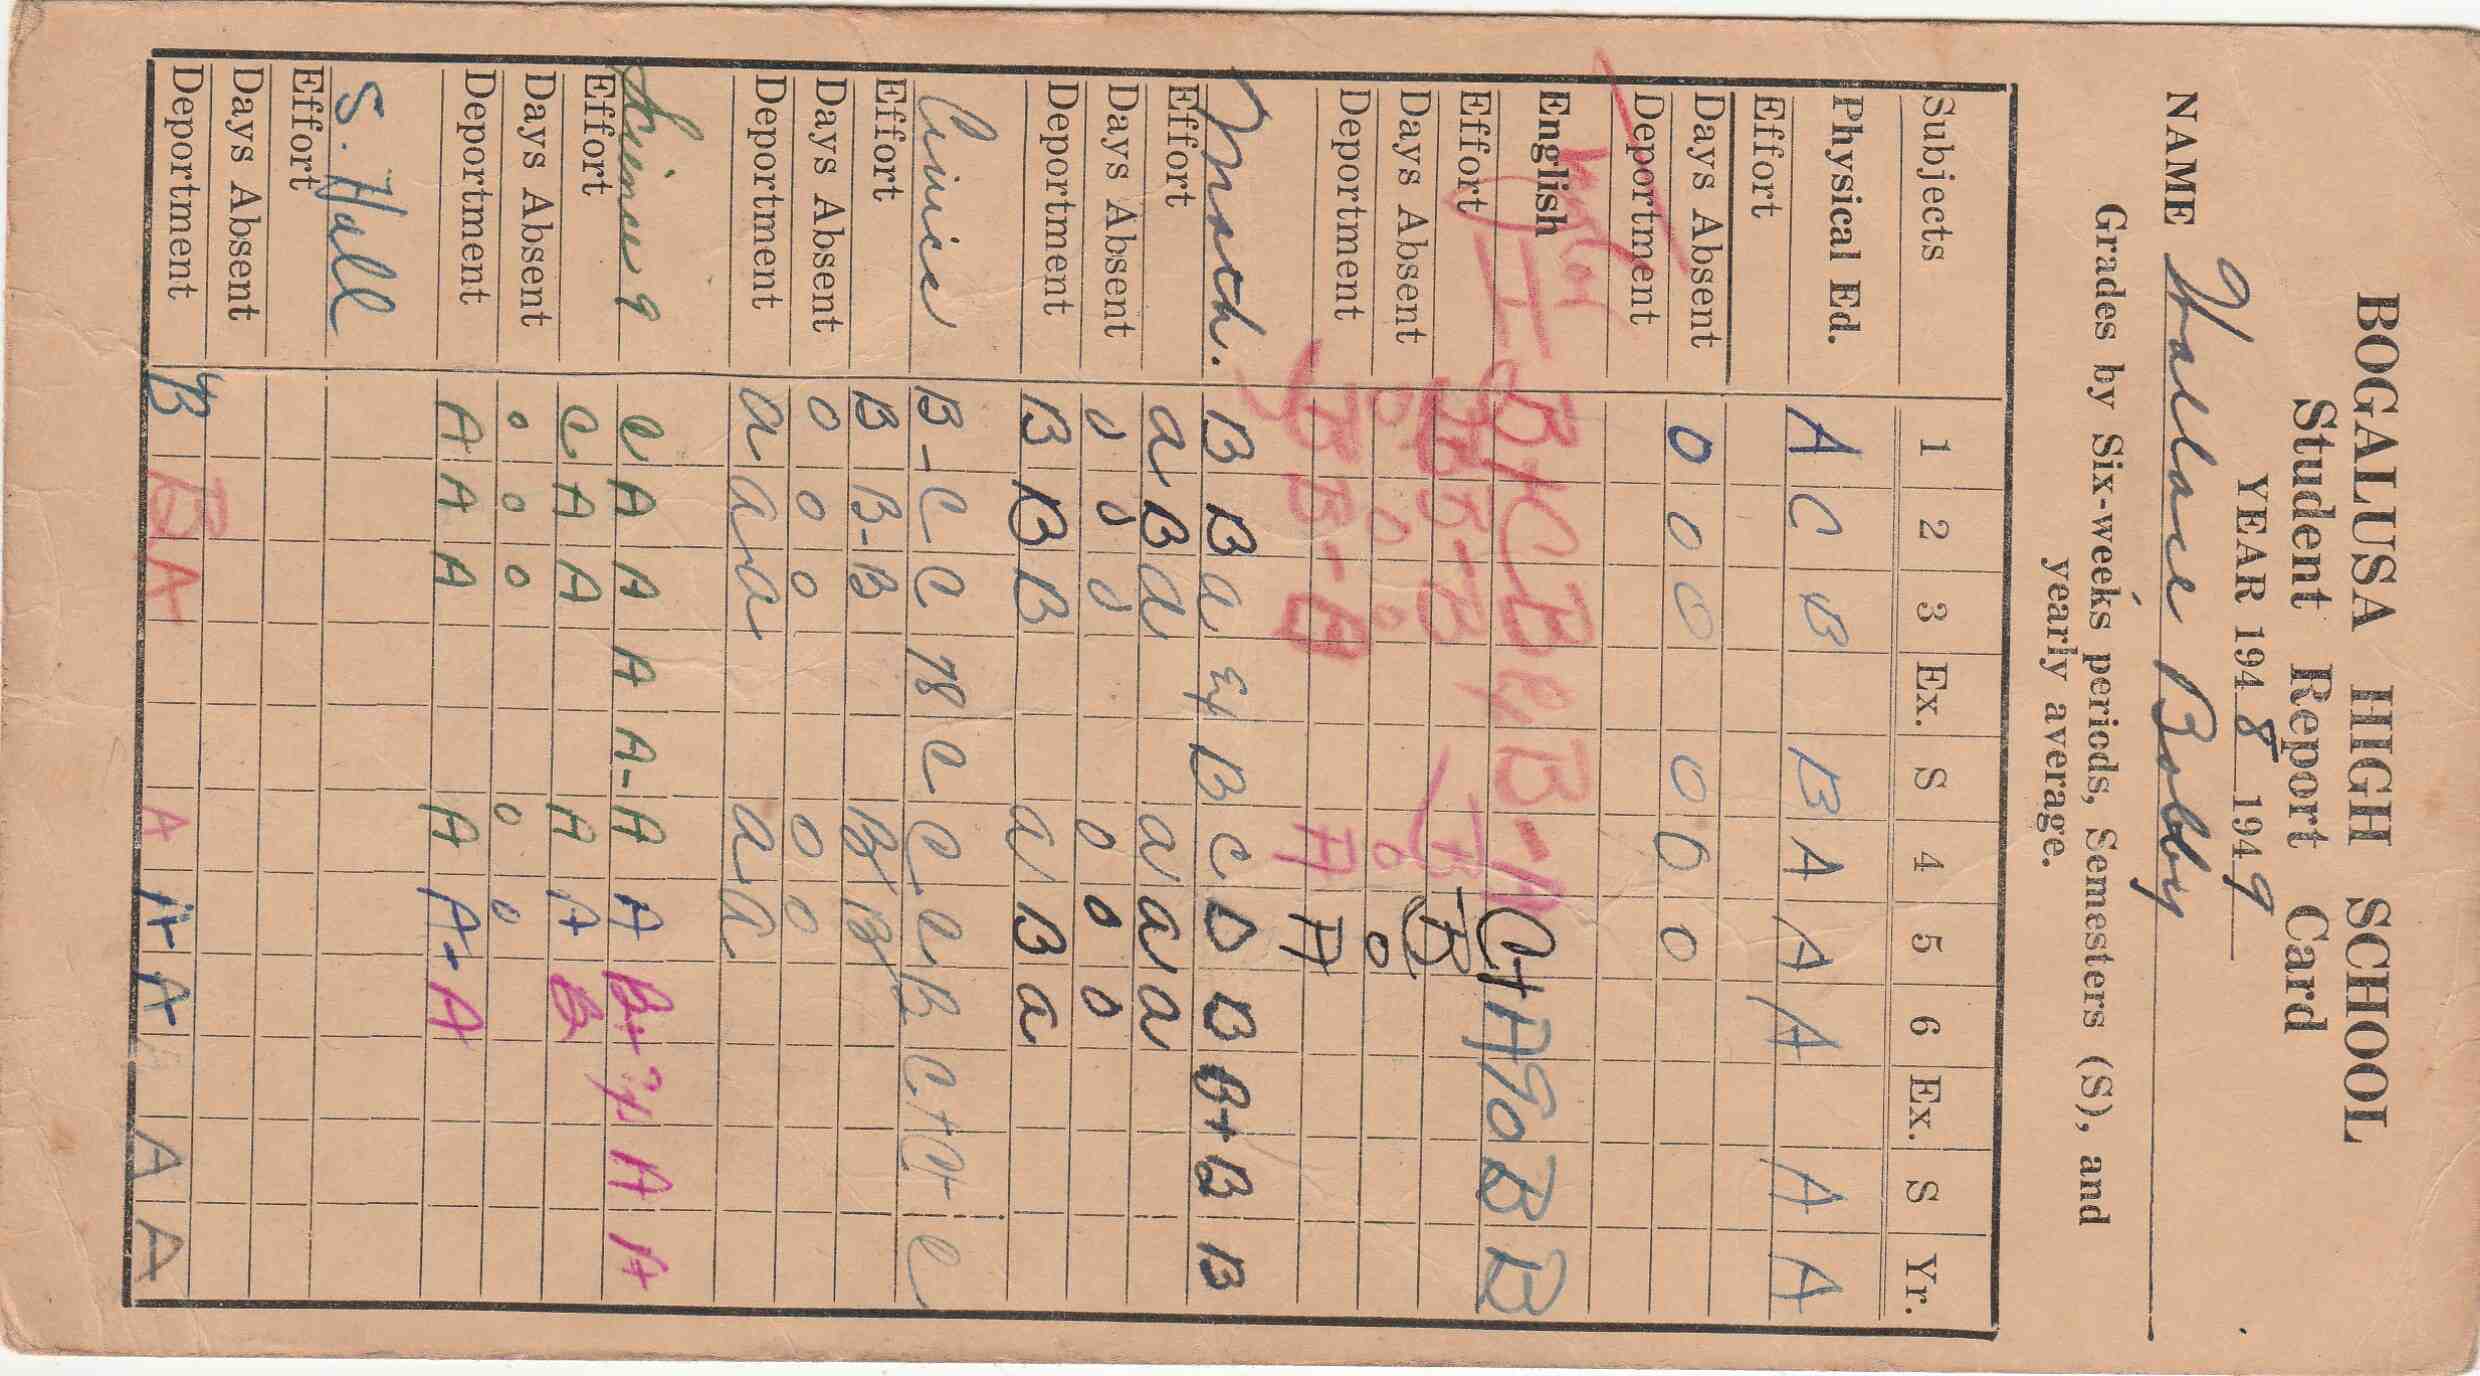 BOGALUSA HIGH SCHOOL
Student Report Card
YEAR 1948 1949
NAME Wallace Bobby
Grades by Six-weeks periods, Semesters (S), and
yearly average.
Subjects 1 2 3 Ex. S 4 5 6 Ex. S Yr.
Physical Ed. A C B B A A A A A
Effort
Days Absent 0 0 0 0 0 0
Deportment
English B C B B- A C+ A 90 B B
Effort B B- B B B
Days Absent 0 0 0 0 0
Deportment B B- B A A
Math. B B a B C D B B+ B B
Effort a B a a a a
Days Absent 0 0 0 0 0 0
Deportment B B B a B a
Civics B- C C 78 C C C B C+ C+ C
Effort B B- B B B
Days Absent 0 0 0 0 0
Deportment a a a a a
Science 9 C A A A A- A A B+ A A
Effort C A A A A B
Days Absent 0 0 0 0 0
Deportment A A A A A- A
S. Hall
Effort
Days Absent
Deportment B B A A A A A A